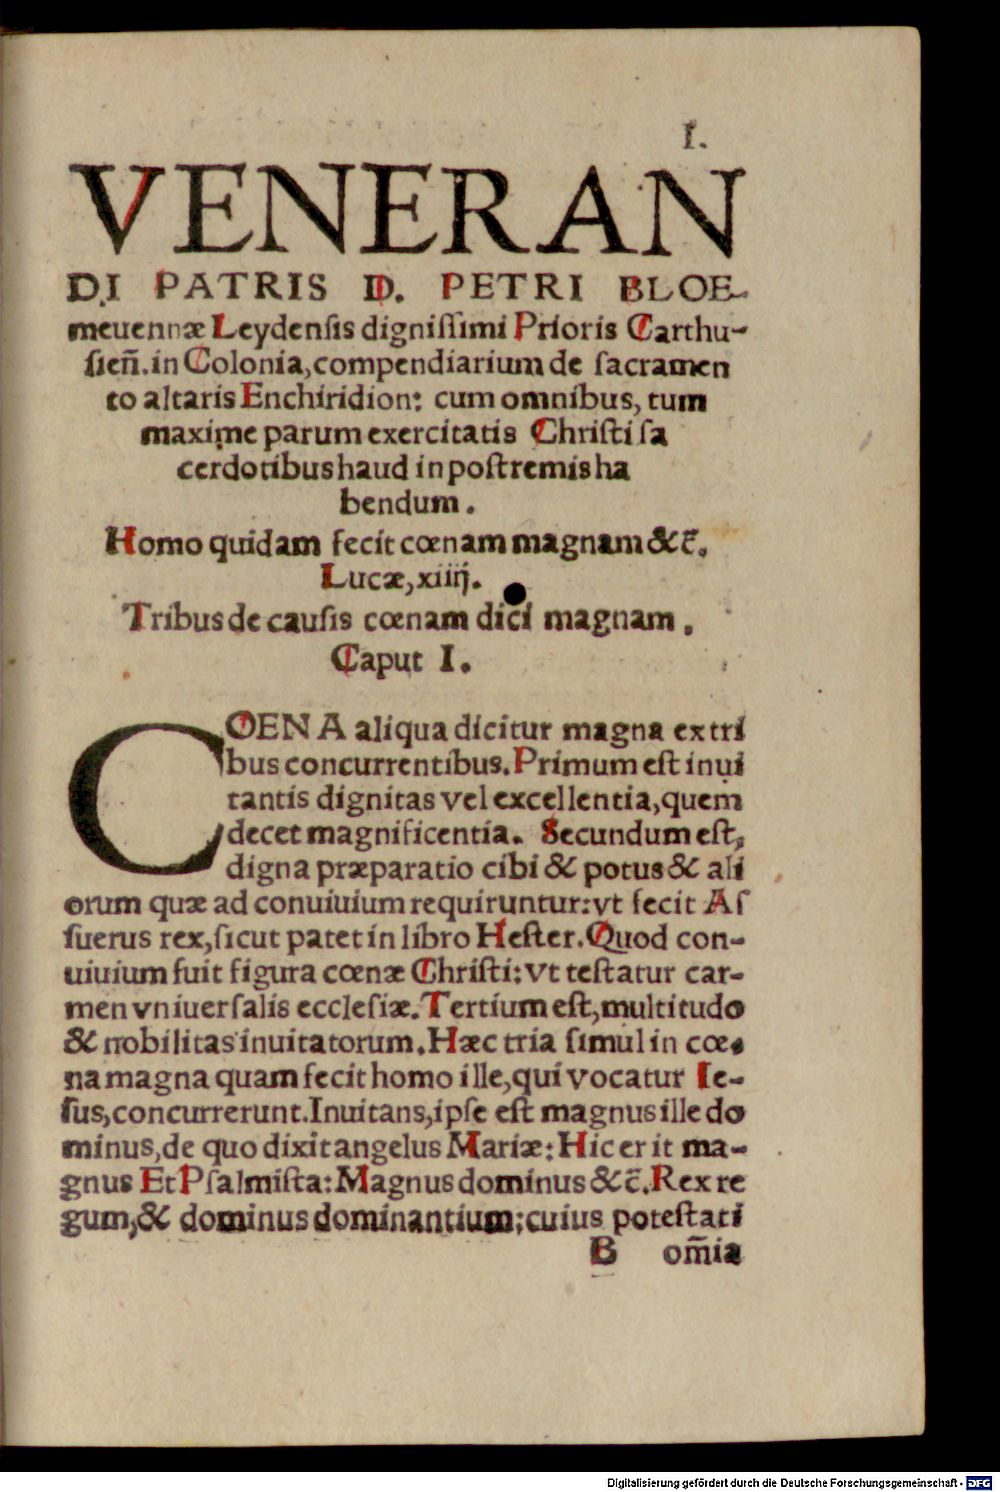 I.
VENERAN
DI PATRIS D. PETRI BLOE-
meuennæ Leydensis dignissimi Prioris Carthu-
sieñ. in Colonia, compendiarium de sacramen
to altaris Enchiridion: cum omnibus, tum
maxime parum exercitatis Christi sa
cerdotibus haud in postremis ha
bendum.
Homo quidam fecit cœnam magnam &c̃.
Lucæ, xiiij.
Tribus de causis cœnam dici magnam.
Caput I.
COENA aliqua dicitur magna ex tri
bus concurrentibus. Primum est inui
tantis dignitas vel excellentia, quem
decet magnificentia. Secundum est,
digna præparatio cibi & potus & ali
orum quæ ad conuiuium requiruntur: vt fecit As
suerus rex, sicut patet in libro Hester. Quod con-
uiuium fuit figura cœnæ Christi: vt testatur car-
men vniuersalis ecclesiæ. Tertium est, multitudo
& nobilitas inuitatorum. Hæc tria simul in cœ-
na magna quam fecit homo ille, qui vocatur Ie-
sus, concurrerunt. Inuitans, ipse est magnus ille do
minus, de quo dixit angelus Mariæ: Hic erit ma-
gnus Et Psalmista: Magnus dominus &c̃. Rex re
gum, & dominus dominantium: cuius potestati
B om̃ia
Digitalisierung gefördert durch die Deutsche Forschungsgemeinschaft - DFG